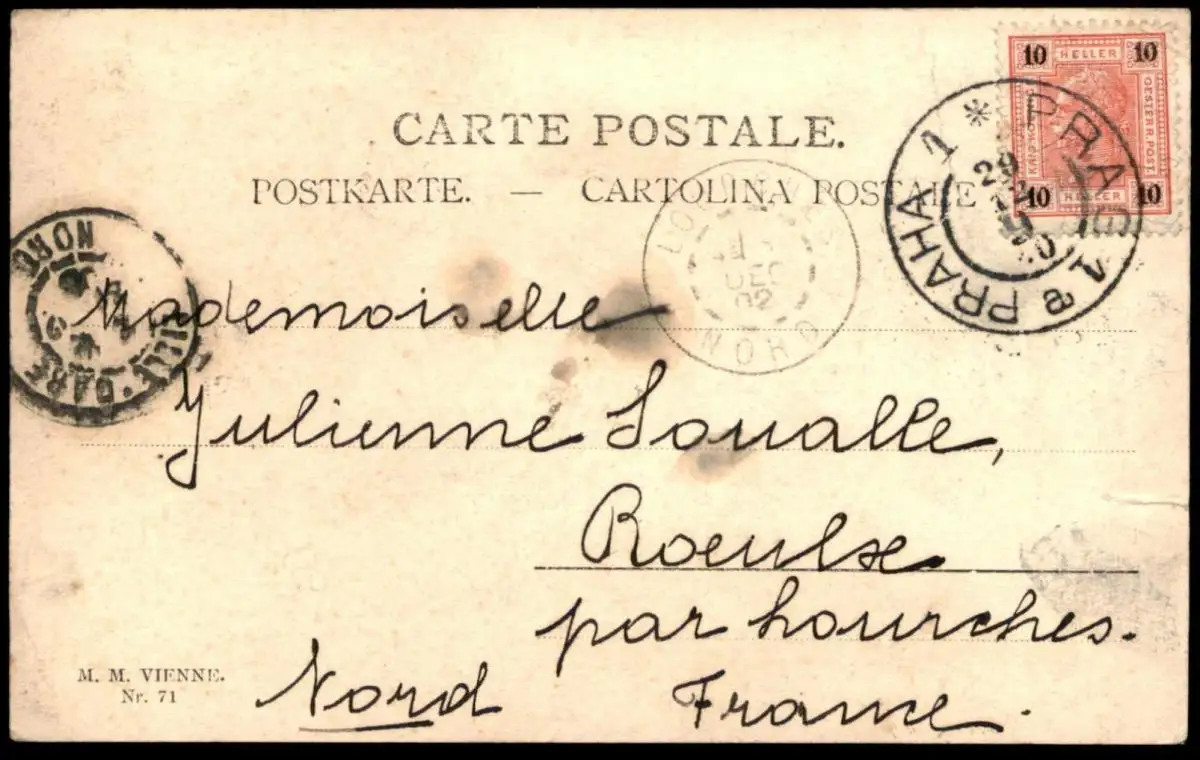 10 HELLER 10
OESTERR. POST
10 HELLER 10
PRAG 1 * PRAHA 1
29
CARTE POSTALE.
POSTKARTE. — CARTOLINA POSTALE
NORD
DEC
02
LILLE-GARE
NORD
Mademoiselle
Julienne Soualle,
Roeulx
par Lourches.
Nord France.
M. M. VIENNE.
Nr. 71